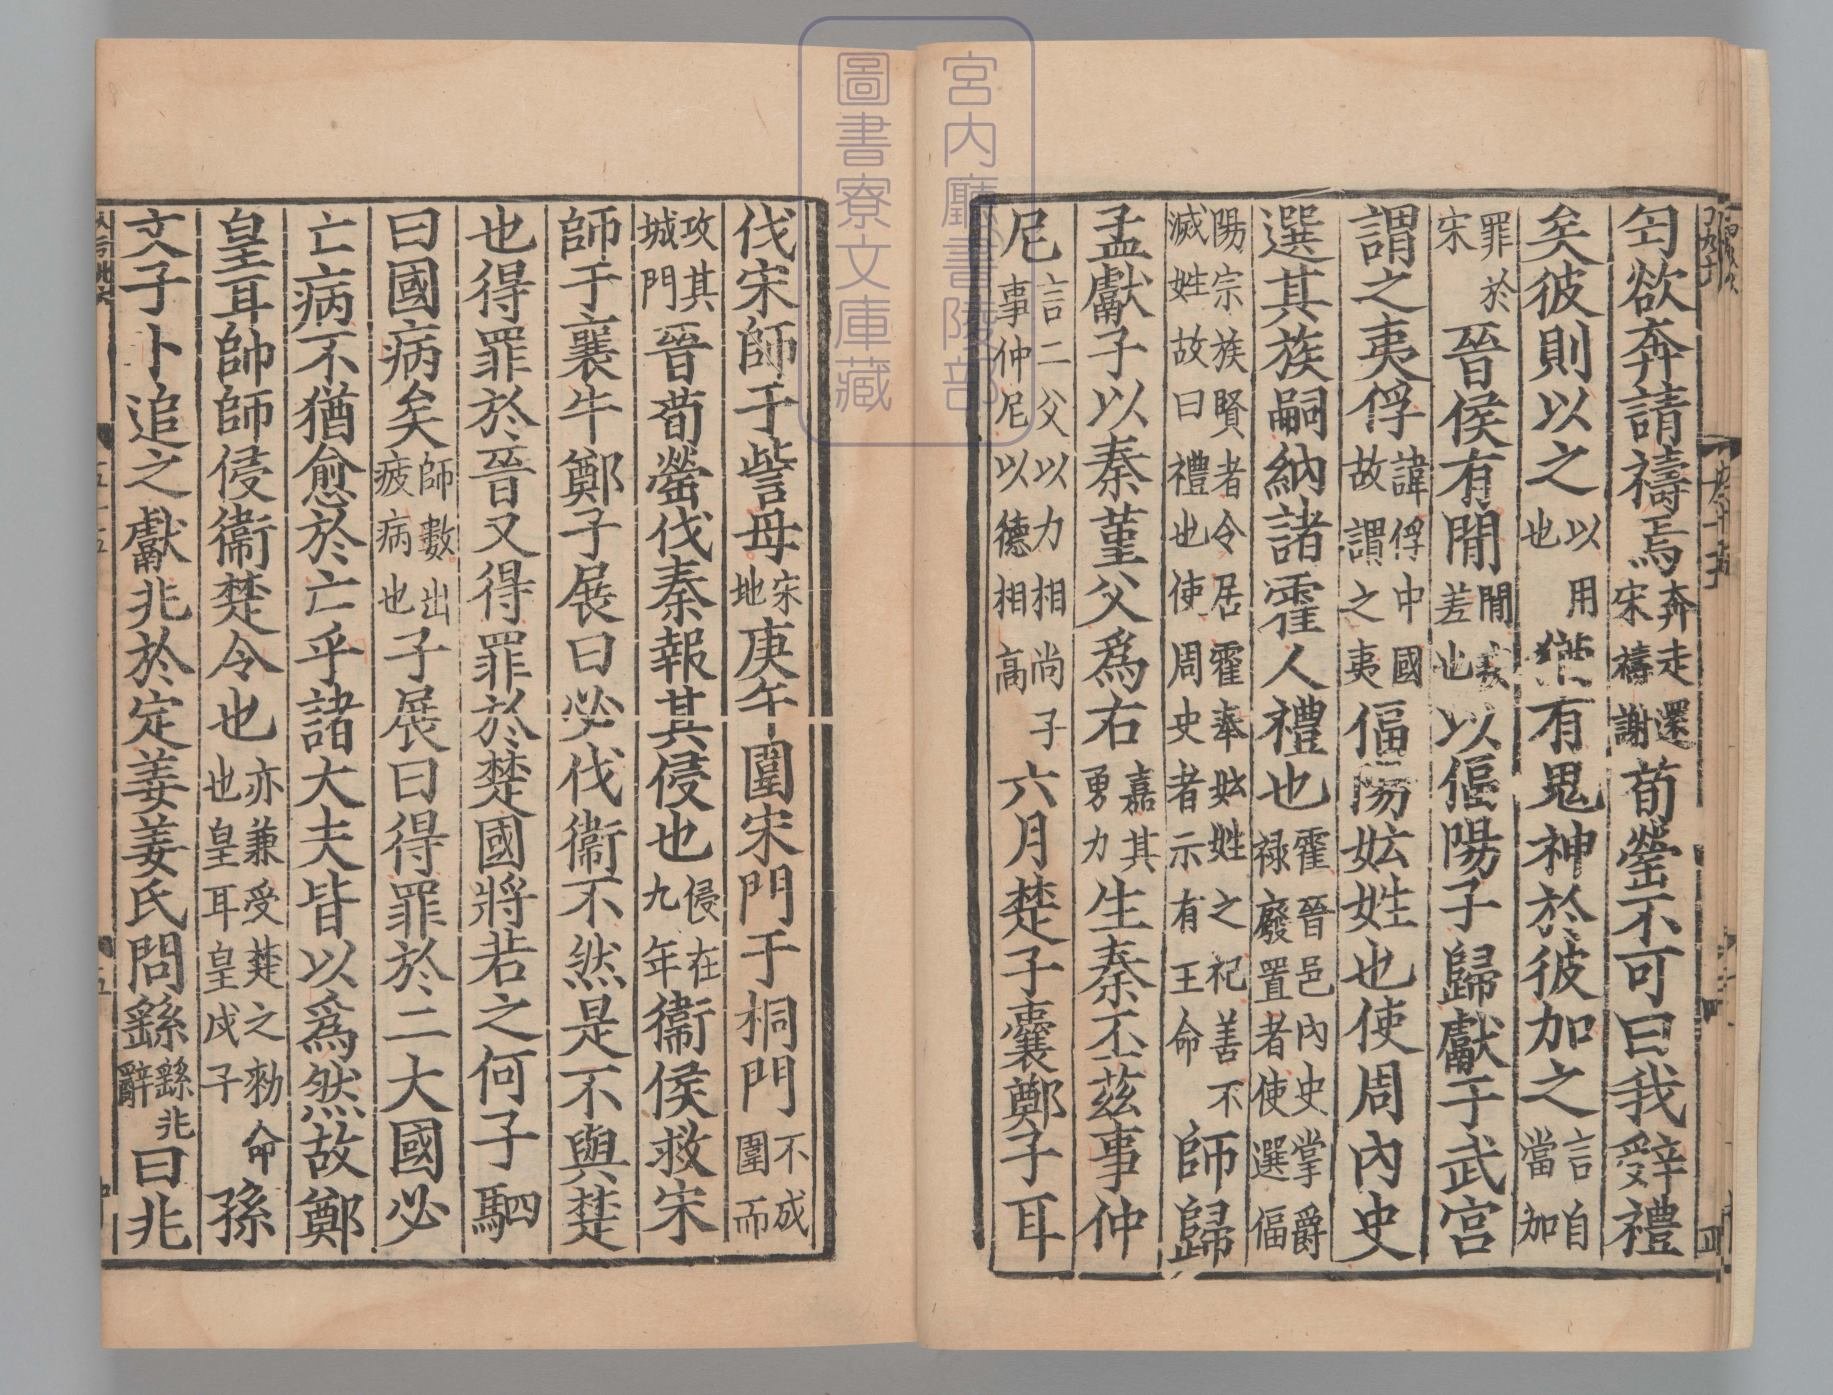 匄欲奔請禱焉奔走還宋禱謝荀罃不可曰我辭禮
矣彼則以之以用也猶有鬼神於彼加之言自當加
罪於宋晉侯有閒閒疾差也以偪陽子歸獻于武宮
謂之夷俘諱俘中國故謂之夷偪陽妘姓也使周內史
選其族嗣納諸霍人禮也霍晉邑內史掌爵祿廢置者使選偪
陽宗族賢者令居霍奉妘姓之祀善不滅姓故曰禮也使周史者示有王命師歸
孟獻子以秦堇父爲右嘉其勇力生秦丕茲事仲
尼言二父以力相尚子事仲尼以德相高六月楚子囊鄭子耳
伐宋師于訾毋宋地庚午圍宋門于桐門不成圍而
攻其城門晉荀罃伐秦報其侵也侵在九年衞侯救宋
師于襄牛鄭子展曰必伐衞不然是不與楚
也得罪於晉又得罪於楚國將若之何子駟
曰國病矣師數出疲病也子展曰得罪於二大國必
亡病不猶愈於亡乎諸大夫皆以爲然故鄭
皇耳帥師侵衞楚令也亦兼受楚之勑命也皇耳皇戌子孫
文子卜追之獻兆於定姜姜氏問繇繇兆辭曰兆
宮內廳書陵部
圖書寮文庫藏